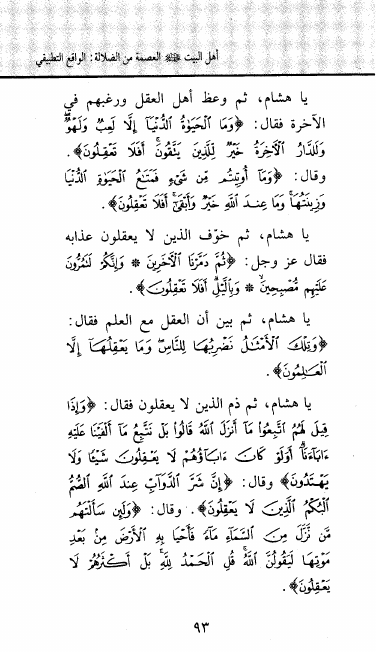 أهل البيت ﷺ العصمة من الضلالة: الواقع التطبيقي
يا هشام، ثم وعظ أهل العقل ورغبهم في
الآخرة فقال: ﴿وَمَا الْحَيَوٰةُ الدُّنْيَآ إِلَّا لَعِبٌ وَلَهْوٌ
وَلَلدَّارُ الْآخِرَةُ خَيْرٌ لِّلَّذِينَ يَتَّقُونَ أَفَلَا تَعْقِلُونَ﴾.
وقال: ﴿وَمَآ أُوتِيتُم مِّن شَىْءٍ فَمَتَٰعُ الْحَيَوٰةِ الدُّنْيَا
وَزِينَتُهَا وَمَا عِندَ اللَّهِ خَيْرٌ وَأَبْقَىٰٓ أَفَلَا تَعْقِلُونَ﴾.
يا هشام، ثم خوّف الذين لا يعقلون عذابه
فقال عز وجل: ﴿ثُمَّ دَمَّرْنَا الْآخَرِينَ * وَإِنَّكُمْ لَتَمُرُّونَ
عَلَيْهِم مُّصْبِحِينَ * وَبِالَّيْلِ أَفَلَا تَعْقِلُونَ﴾.
يا هشام، ثم بين أن العقل مع العلم فقال:
﴿وَتِلْكَ الْأَمْثَٰلُ نَضْرِبُهَا لِلنَّاسِ وَمَا يَعْقِلُهَآ إِلَّا
الْعَٰلِمُونَ﴾.
يا هشام، ثم ذم الذين لا يعقلون فقال: ﴿وَإِذَا
قِيلَ لَهُمُ اتَّبِعُوا مَآ أَنزَلَ اللَّهُ قَالُوا بَلْ نَتَّبِعُ مَآ أَلْفَيْنَا عَلَيْهِ
ءَابَآءَنَآ أَوَلَوْ كَانَ ءَابَآؤُهُمْ لَا يَعْقِلُونَ شَيْئًا وَلَا
يَهْتَدُونَ﴾ وقال: ﴿إِنَّ شَرَّ الدَّوَآبِّ عِندَ اللَّهِ الصُّمُّ
الْبُكْمُ الَّذِينَ لَا يَعْقِلُونَ﴾. وقال: ﴿وَلَئِن سَأَلْتَهُم
مَّن نَّزَّلَ مِنَ السَّمَآءِ مَآءً فَأَحْيَا بِهِ الْأَرْضَ مِنْ بَعْدِ
مَوْتِهَا لَيَقُولُنَّ اللَّهُ قُلِ الْحَمْدُ لِلَّهِ بَلْ أَكْثَرُهُمْ لَا
يَعْقِلُونَ﴾.
٩٣